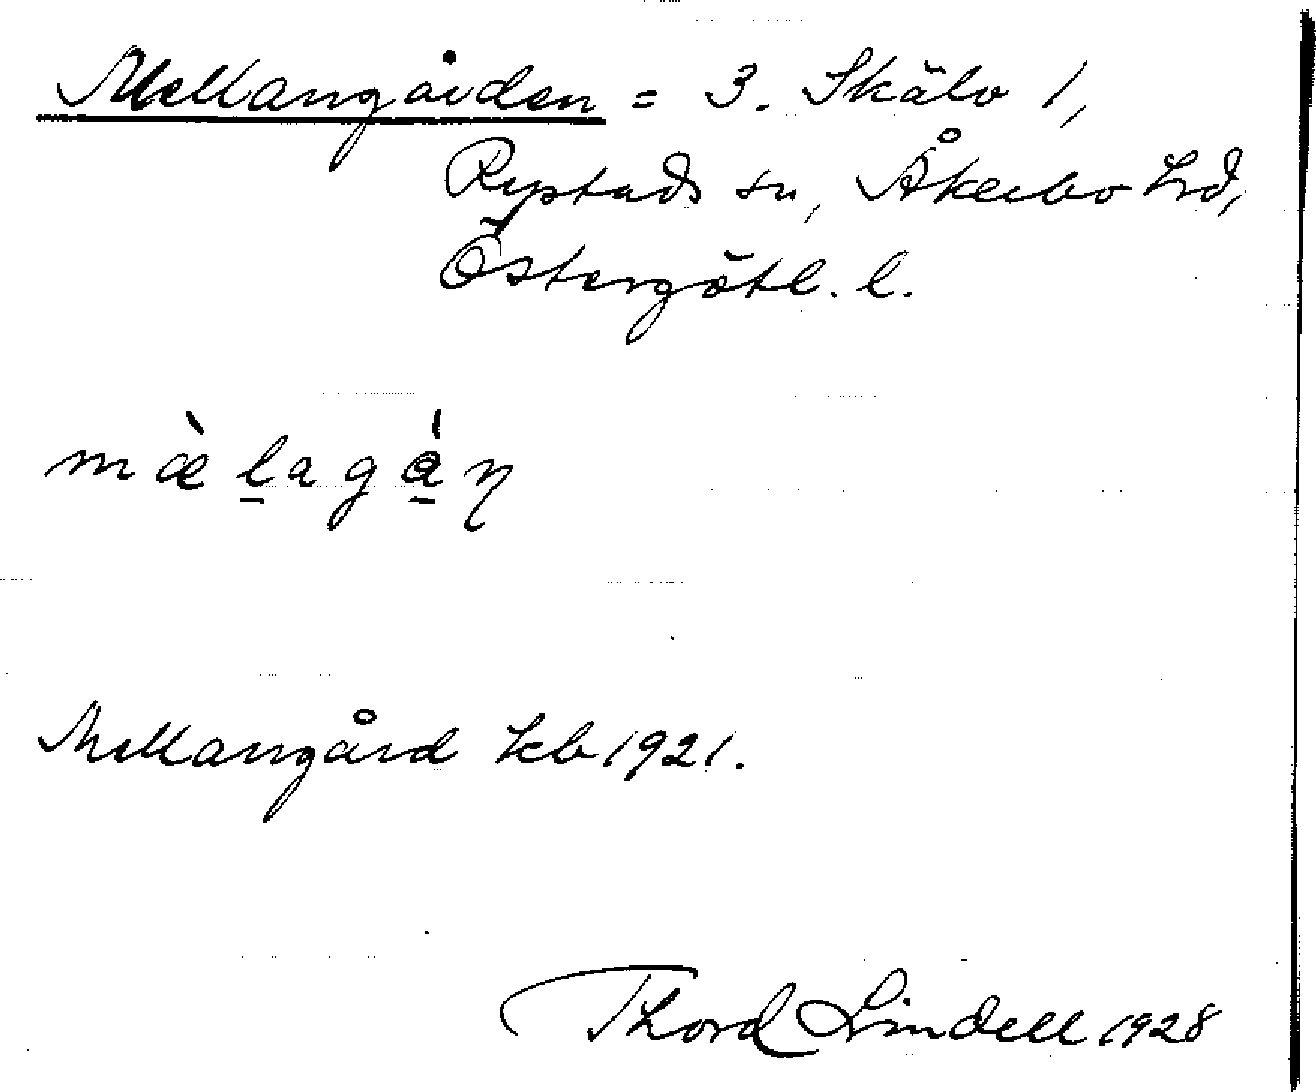 Mellangården = 3. Skälv 1,
Rystads sn, Åkerbo hd,
Östergötl. l.
mæ̀l̠agå̠̀ṇ
Mellangård kb 1921.
Thord Lindell 1928